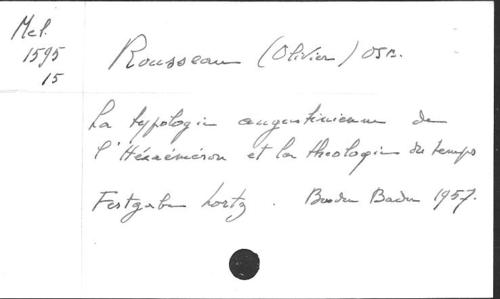 Mel.
1595
15
Rousseau (Olivier) OSB.
La typologie augustinienne de
l'Hexaéméron et la theologie du temps
Festgabe Lortz. Baden Baden 1957.